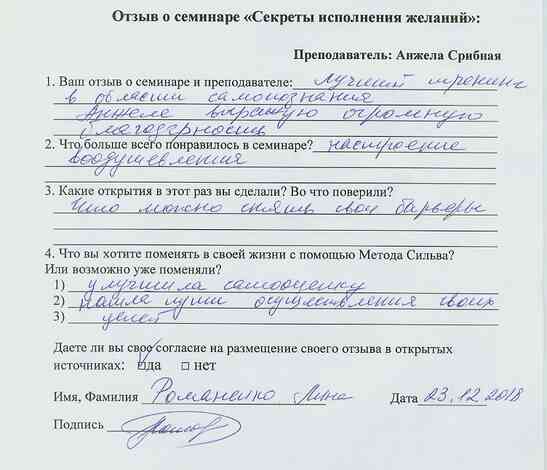 Отзыв о семинаре «Секреты исполнения желаний»:
Преподаватель: Анжела Срибная
1. Ваш отзыв о семинаре и преподавателе: Лучший тренинг
в области самопознания
Анжеле выражую огромную
благодарность
2. Что больше всего понравилось в семинаре? настроение
воодушевления
3. Какие открытия в этот раз вы сделали? Во что поверили?
Что можно снять свои барьеры
4. Что вы хотите поменять в своей жизни с помощью Метода Сильва?
Или возможно уже поменяли?
1) улучшила самооценку
2) нашла пути осуществления своих
3) целей
Даете ли вы свое согласие на размещение своего отзыва в открытых
источниках: □да □ нет
Имя, Фамилия Романенко Лина Дата 23.12.2018
Подпись